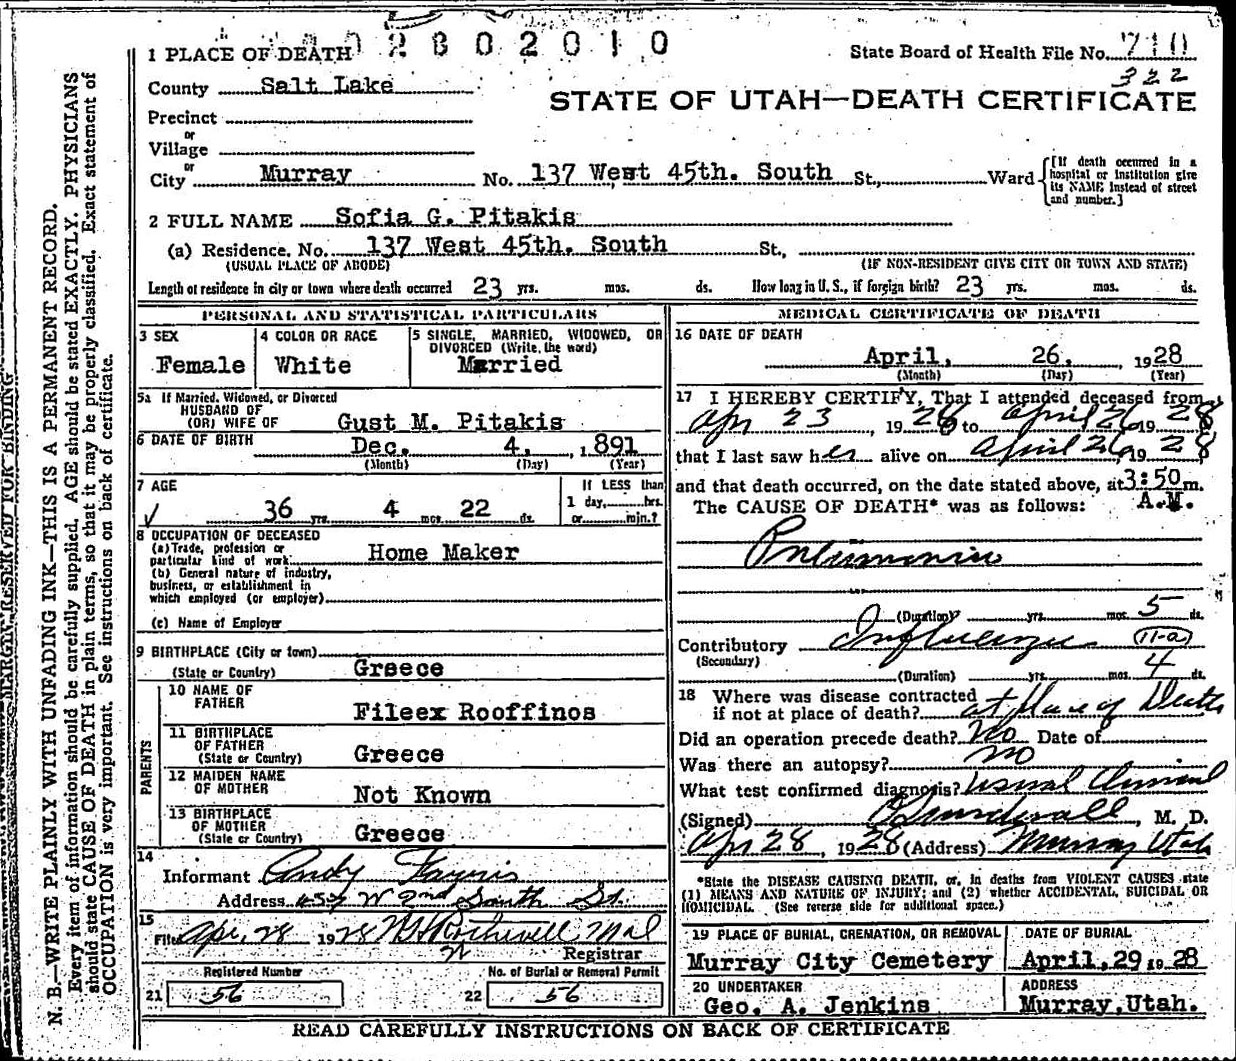 02802010
1 PLACE OF DEATH
State Board of Health File No. 710
322
County Salt Lake
STATE OF UTAH—DEATH CERTIFICATE
Precinct
or
Village
or
City Murray No. 137 West 45th. South St., Ward
[If death occurred in a hospital or institution give its NAME instead of street and number.]
2 FULL NAME Sofia G. Pitakis
(a) Residence. No. 137 West 45th. South St.,
(USUAL PLACE OF ABODE) (IF NON-RESIDENT GIVE CITY OR TOWN AND STATE)
Length of residence in city or town where death occurred 23 yrs. mos. ds. How long in U. S., if foreign birth? 23 yrs. mos. ds.
PERSONAL AND STATISTICAL PARTICULARS
3 SEX
Female
4 COLOR OR RACE
White
5 SINGLE, MARRIED, WIDOWED, OR DIVORCED (Write the word)
Married
5a If Married, Widowed, or Divorced
HUSBAND OF
(OR) WIFE OF Gust M. Pitakis
6 DATE OF BIRTH Dec. 4, 1891
(Month) (Day) (Year)
7 AGE
36 yrs. 4 mos. 22 ds.
If LESS than
1 day, hrs.
or min.?
8 OCCUPATION OF DECEASED
(a) Trade, profession or
particular kind of work Home Maker
(b) General nature of industry,
business, or establishment in
which employed (or employer)
(c) Name of Employer
9 BIRTHPLACE (City or town)
(State or Country) Greece
PARENTS
10 NAME OF
FATHER Fileex Rooffinos
11 BIRTHPLACE
OF FATHER
(State or Country) Greece
12 MAIDEN NAME
OF MOTHER Not Known
13 BIRTHPLACE
OF MOTHER
(State or Country) Greece
14
Informant Andy
Address 457 W 2nd South St.
15
Filed Apr. 28 1928 M.D.
Registrar
Registered Number
21 56
No. of Burial or Removal Permit
22 56
MEDICAL CERTIFICATE OF DEATH
16 DATE OF DEATH
April, 26, 1928
(Month) (Day) (Year)
17 I HEREBY CERTIFY, That I attended deceased from
Apr 23, 1928 to April 26 1928
that I last saw her alive on April 26, 1928
and that death occurred, on the date stated above, at 3:50 m.
A.M.
The CAUSE OF DEATH* was as follows:
Pneumonia
(Duration) yrs. mos. 5 ds.
Contributory Influenza 11-a
(Secondary)
(Duration) yrs. mos. 4 ds.
18 Where was disease contracted
if not at place of death? at Place of Death
Did an operation precede death? No Date of
Was there an autopsy? no
What test confirmed diagnosis? Usual Clinical
(Signed) , M. D.
Apr 28, 1928 (Address) Murray Utah
*State the DISEASE CAUSING DEATH, or, in deaths from VIOLENT CAUSES state
(1) MEANS AND NATURE OF INJURY; and (2) whether ACCIDENTAL, SUICIDAL OR
HOMICIDAL. (See reverse side for additional space.)
19 PLACE OF BURIAL, CREMATION, OR REMOVAL
Murray City Cemetery
DATE OF BURIAL
April, 29, 1928
20 UNDERTAKER
Geo. A. Jenkins
ADDRESS
Murray, Utah.
READ CAREFULLY INSTRUCTIONS ON BACK OF CERTIFICATE
MARGIN RESERVED FOR BINDING
N. B.—WRITE PLAINLY WITH UNFADING INK—THIS IS A PERMANENT RECORD.
Every item of information should be carefully supplied. AGE should be stated EXACTLY. PHYSICIANS
should state CAUSE OF DEATH in plain terms, so that it may be properly classified. Exact statement of
OCCUPATION is very important. See instructions on back of certificate.